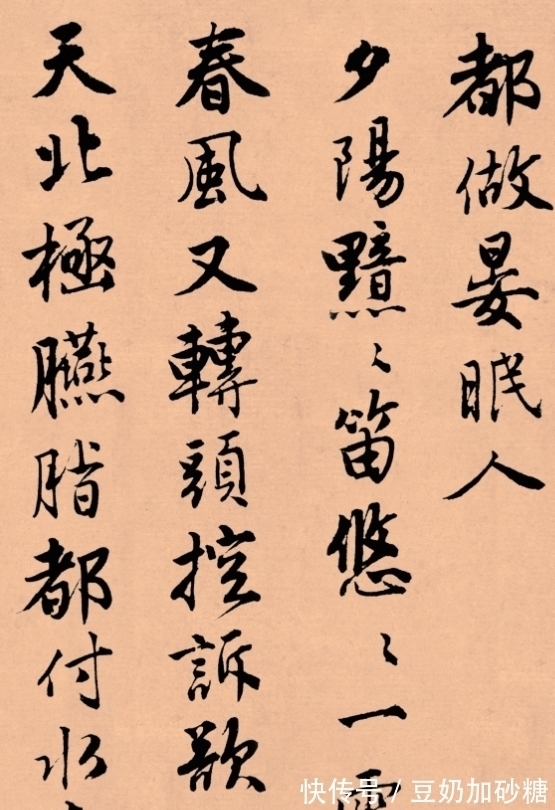 都做晏眠人
夕陽黯〻笛悠〻一
春風又轉頭控訴欲
天北極臙脂都付水
快传号/豆奶加砂糖